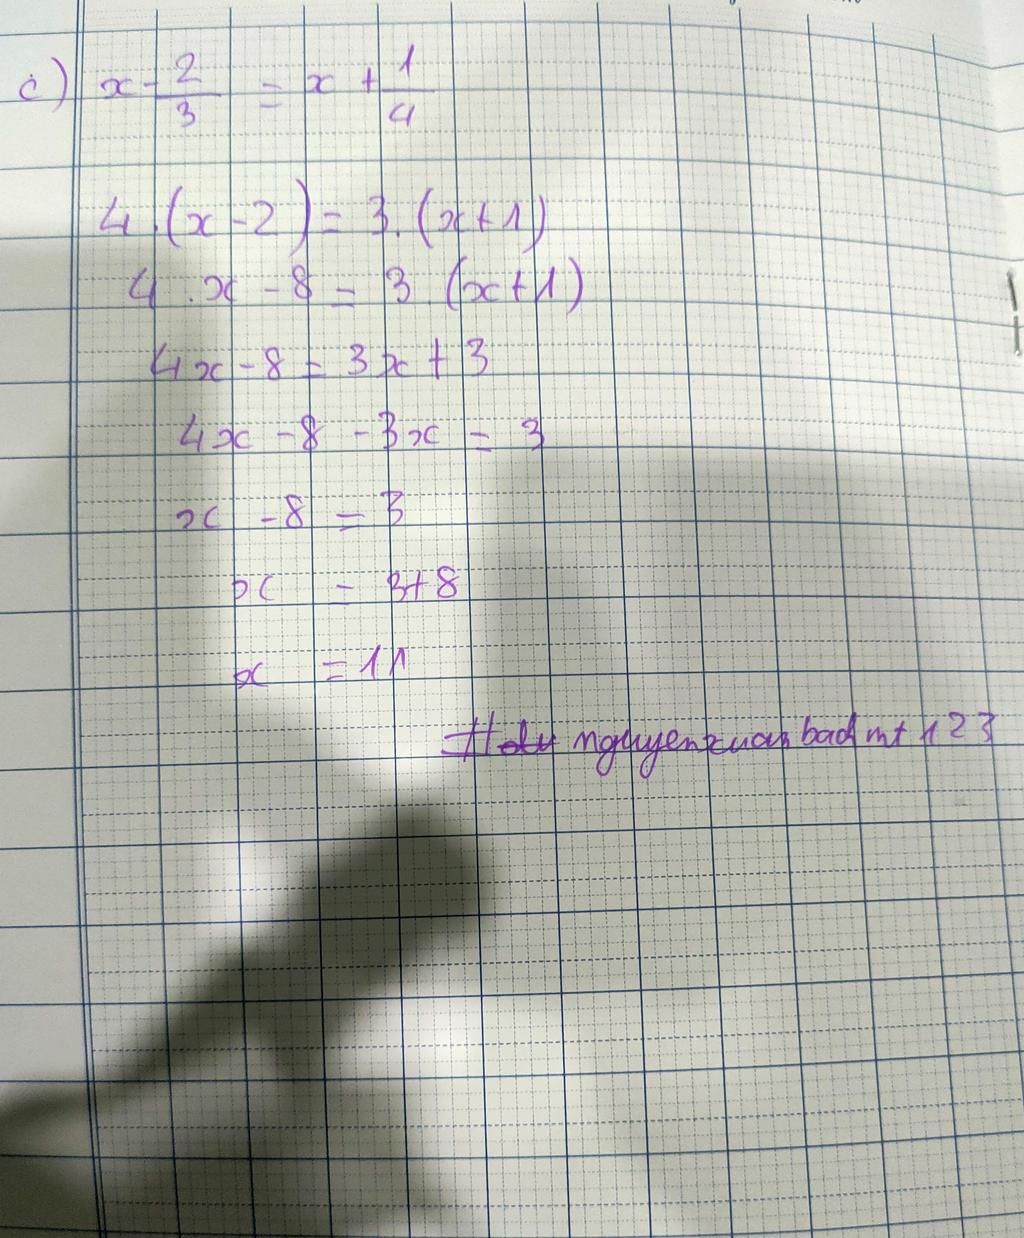 c) x - 2/3 = x + 1/4
4.(x-2) = 3.(x+1)
4.x - 8 = 3.(x+1)
4x - 8 = 3x + 3
4x - 8 - 3x = 3
x - 8 = 3
x = 3+8
x = 11
nguyenxuan badmt 123